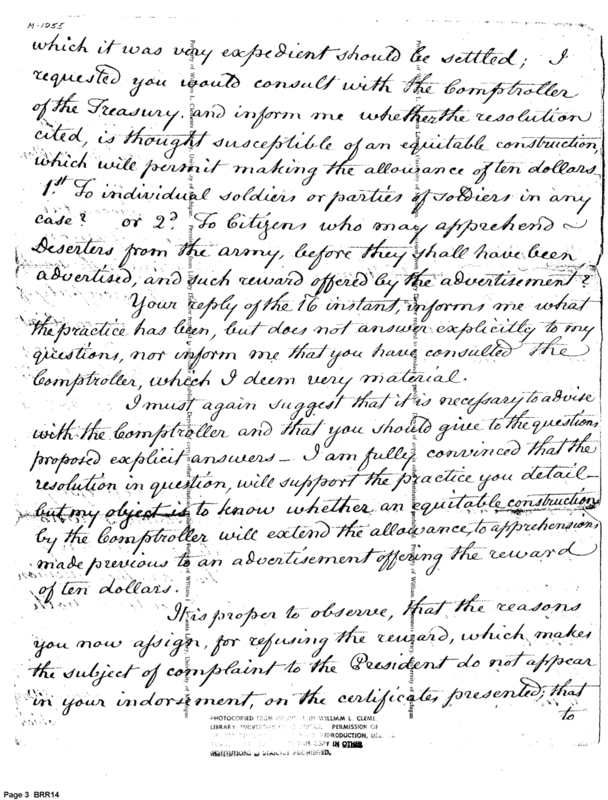 M-1055
which it was very expedient should be settled; I
requested you would consult with the Comptroller
of the Treasury, and inform me whether the resolution
cited, is thought susceptible of an equitable construction,
which will permit making the allowance of ten dollars
1st To individual soldiers or parties of soldiers in any
case? or 2d. To Citizens who may apprehend
Deserters from the army, before they shall have been
advertised, and such reward offered by the advertisement?
Your reply of the 16 instant, informs me what
the practice has been, but does not answer explicitly to my
questions, nor inform me that you have consulted the
Comptroller, which I deem very material.
I must again suggest that it is necessary to advise
with the Comptroller and that you should give to the questions
proposed explicit answers — I am fully convinced that the
resolution in question, will support the practice you detail
but my object is to know whether an equitable construction
by the Comptroller will extend the allowance, to apprehensions
made previous to an advertisement offering the reward
of ten dollars.
It is proper to observe, that the reasons
you now assign, for refusing the reward, which makes
the subject of complaint to the President do not appear
in your indorsement, on the certificates presented; that
to
PHOTOCOPIED FROM IN WILLIAM L. CLEME
LIBRARY, PERMISSION OF
REPRODUCTION,
COPY IN OTHER
INSTITUTIONS IS STRICTLY PROHIBITED.
Page 3 BRR14